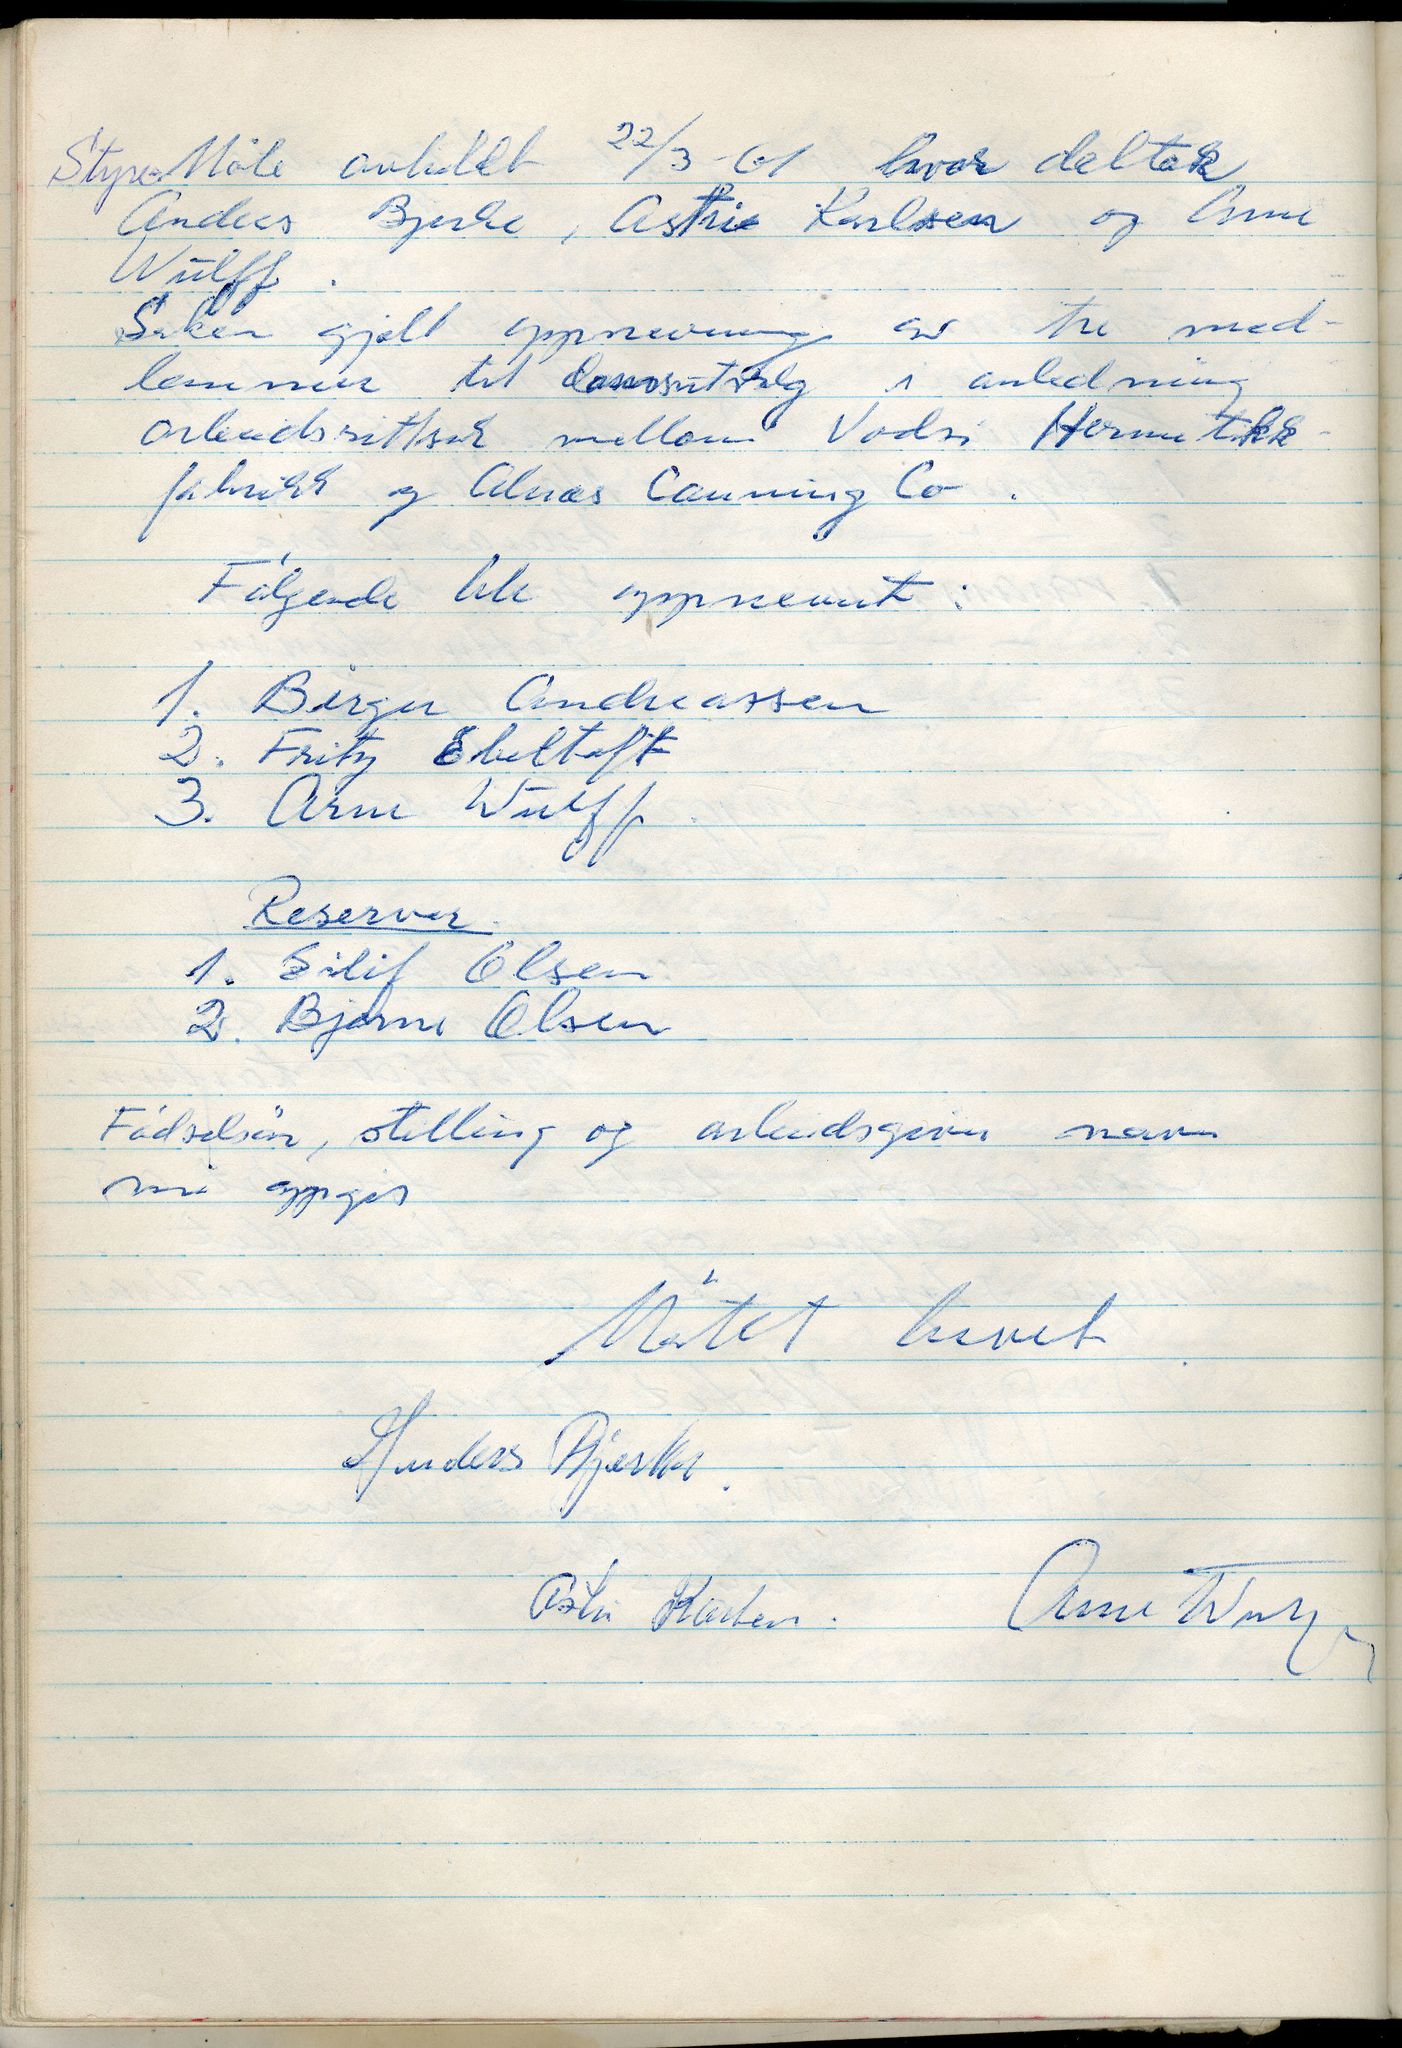 Styre Möte avholdt 22/3-61 hvor deltok
Anders Bjerke, Astrid Karlsen og Arne
Wülff.
Saken gjelt oppnevning av tre med-
lemmer til domsutvalg i anledning
arbeidsrettsak mellom Vadsö Hermetikk-
fabrikk og Alnæs Canning Co.
Fölgende ble oppnevnt:
1. Birger Andreassen
2. Fritz Ebeltoft
3. Arne Wülff
Reserver.
1. Eilif Olsen
2. Bjarne Olsen
Födselsår, stilling og arbeidsgiver navn
må oppgis
Mötet hevet.
Anders Bjerke.
Karlsen.
Arne Wulff